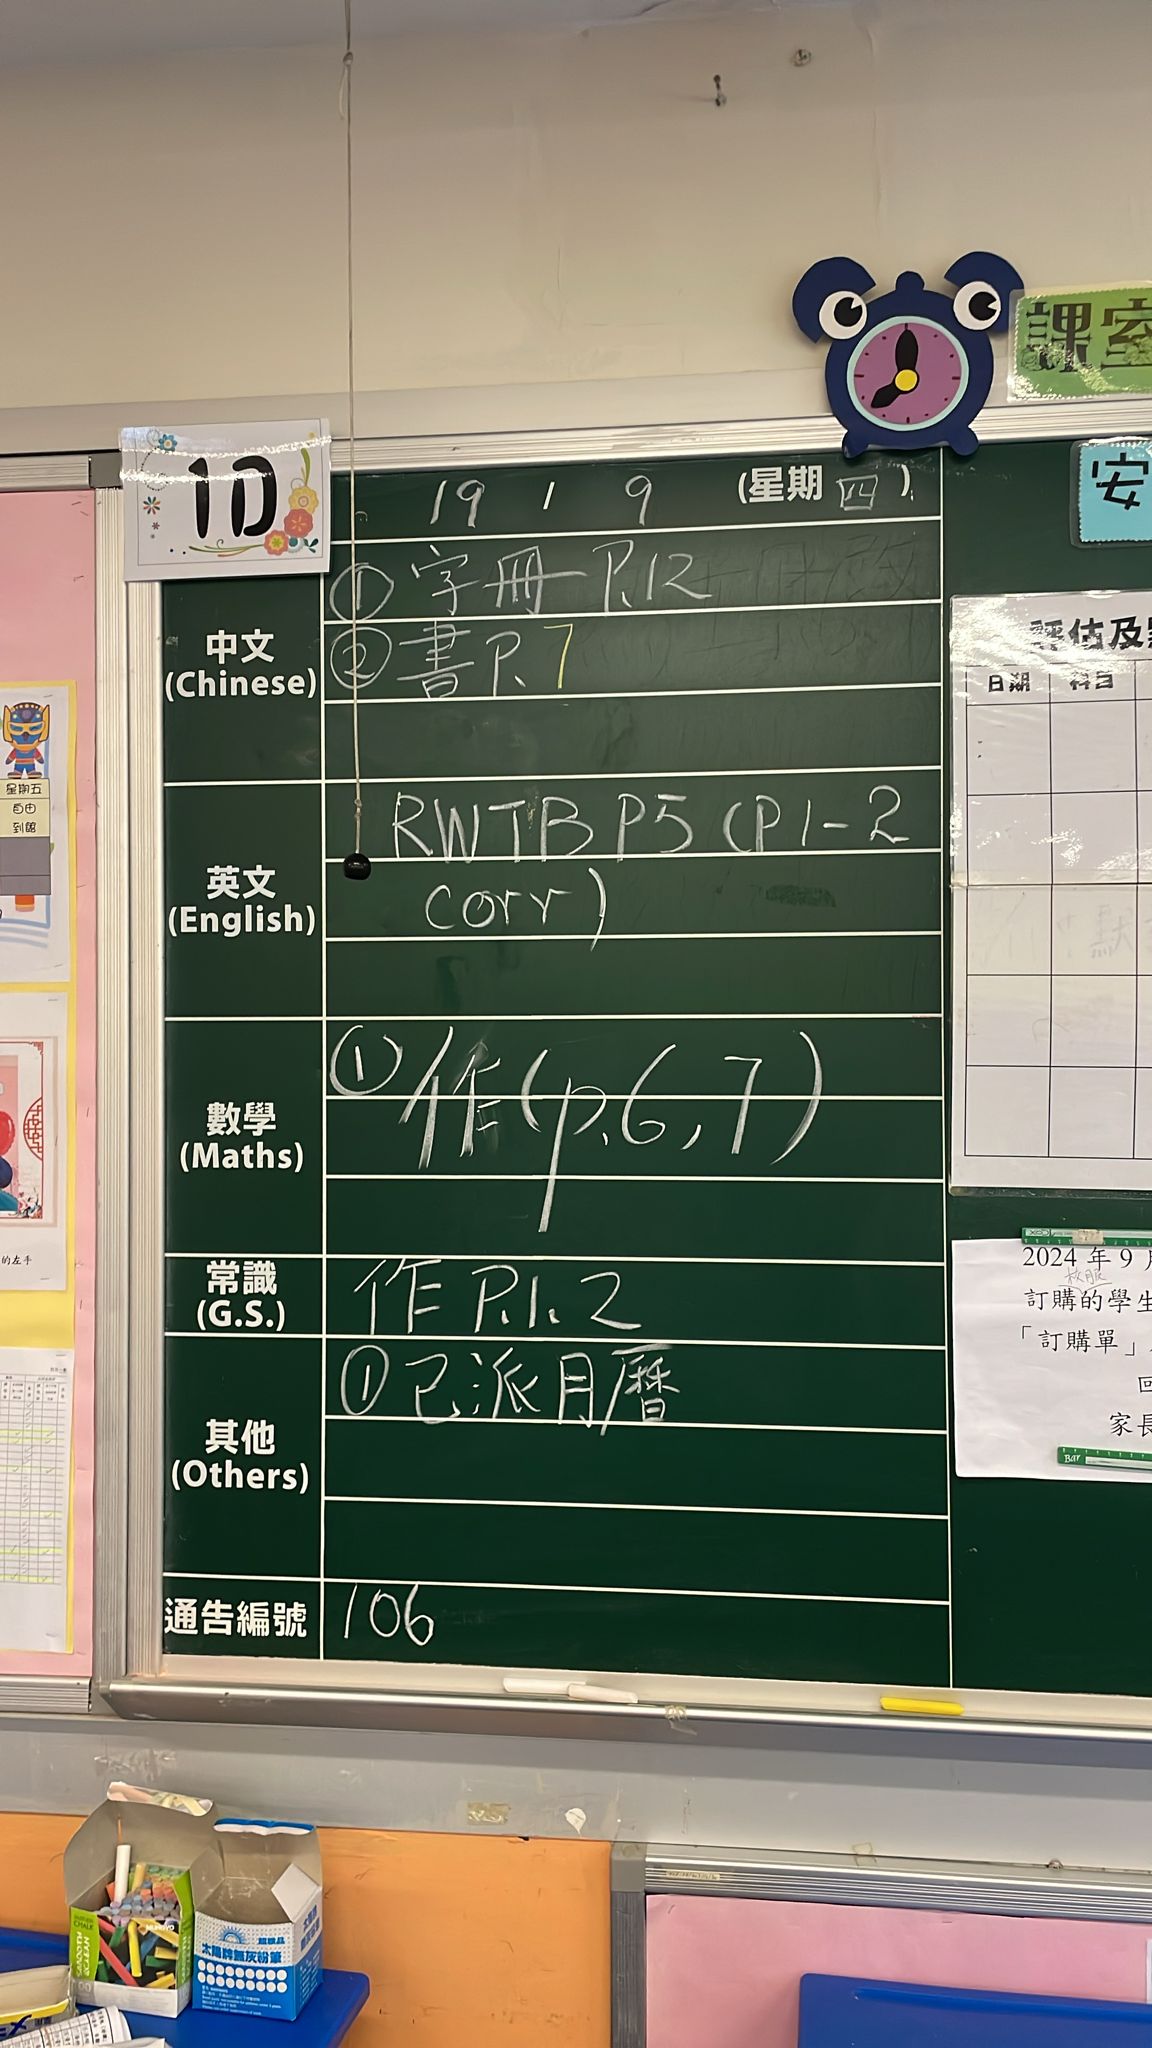 課室
1D
19 / 9 (星期 四 )
安
中文
(Chinese)
① 字冊 P.12
② 書 P. 7
英文
(English)
RWTB P5 (P1-2
corr)
數學
(Maths)
① 作(p.6,7)
常識
(G.S.)
作 P.1. 2
其他
(Others)
① 已派月曆
通告編號
106
評估及
日期 科目
2024 年 9 月
校服
訂購的學生
「訂購單」
回
家長
星期五
自由
到館
的左手
太陽牌無灰粉筆